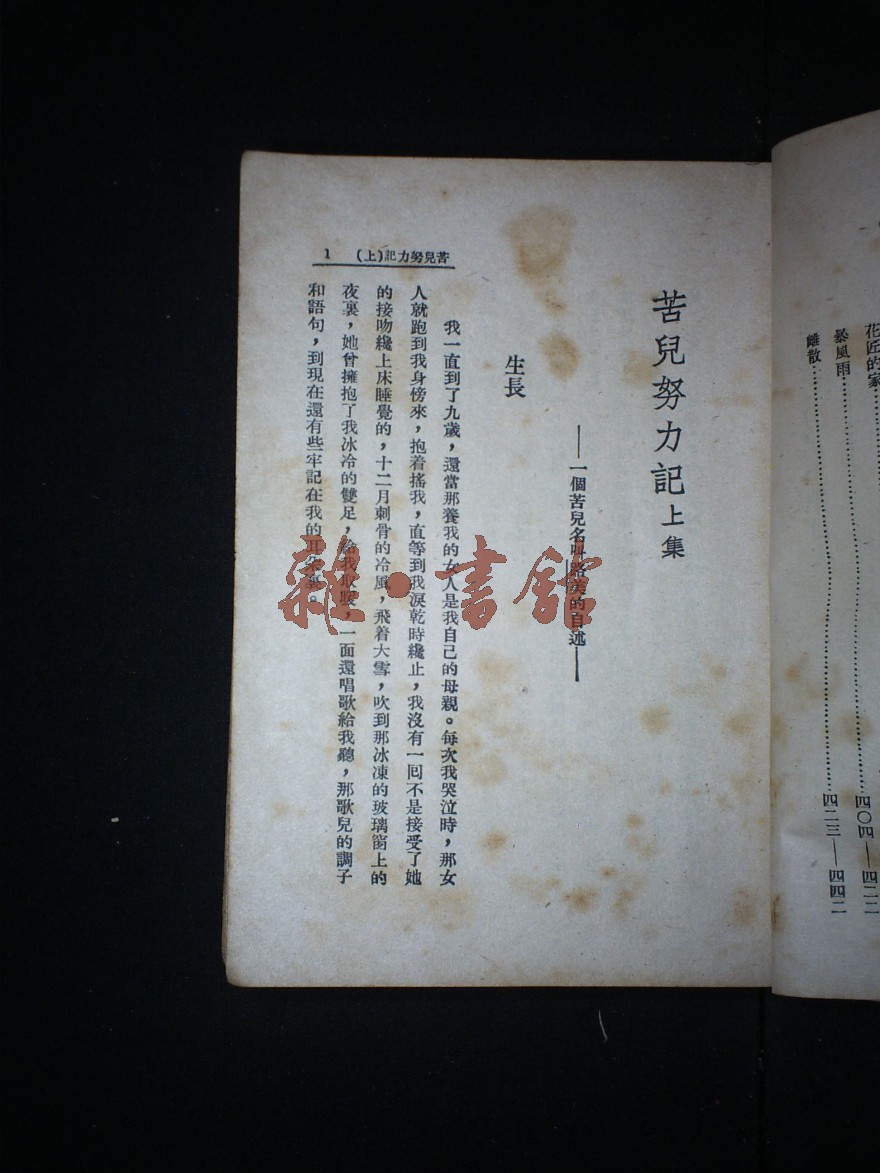 花匠的家
暴風雨……四〇四—四二二
離散……四二三—四四二
苦兒努力記上集
——一個苦兒名叫路美的自述——
生長
1 苦兒努力記(上)
我一直到了九歲，還當那養我的女人是我自己的母親。每次我哭泣時，那女
人就跑到我身傍來，抱着搖我，直等到我淚乾時纔止，我沒有一囘不是接受了她
的接吻纔上床睡覺的，十二月刺骨的冷風，飛着大雪，吹到那冰凍的玻璃窗上的
夜裏，她曾擁抱了我冰冷的雙足，給我取暖，一面還唱歌給我聽，那歌兒的調子
和語句，到現在還有些牢記在我的耳朵裏。
雜·書館